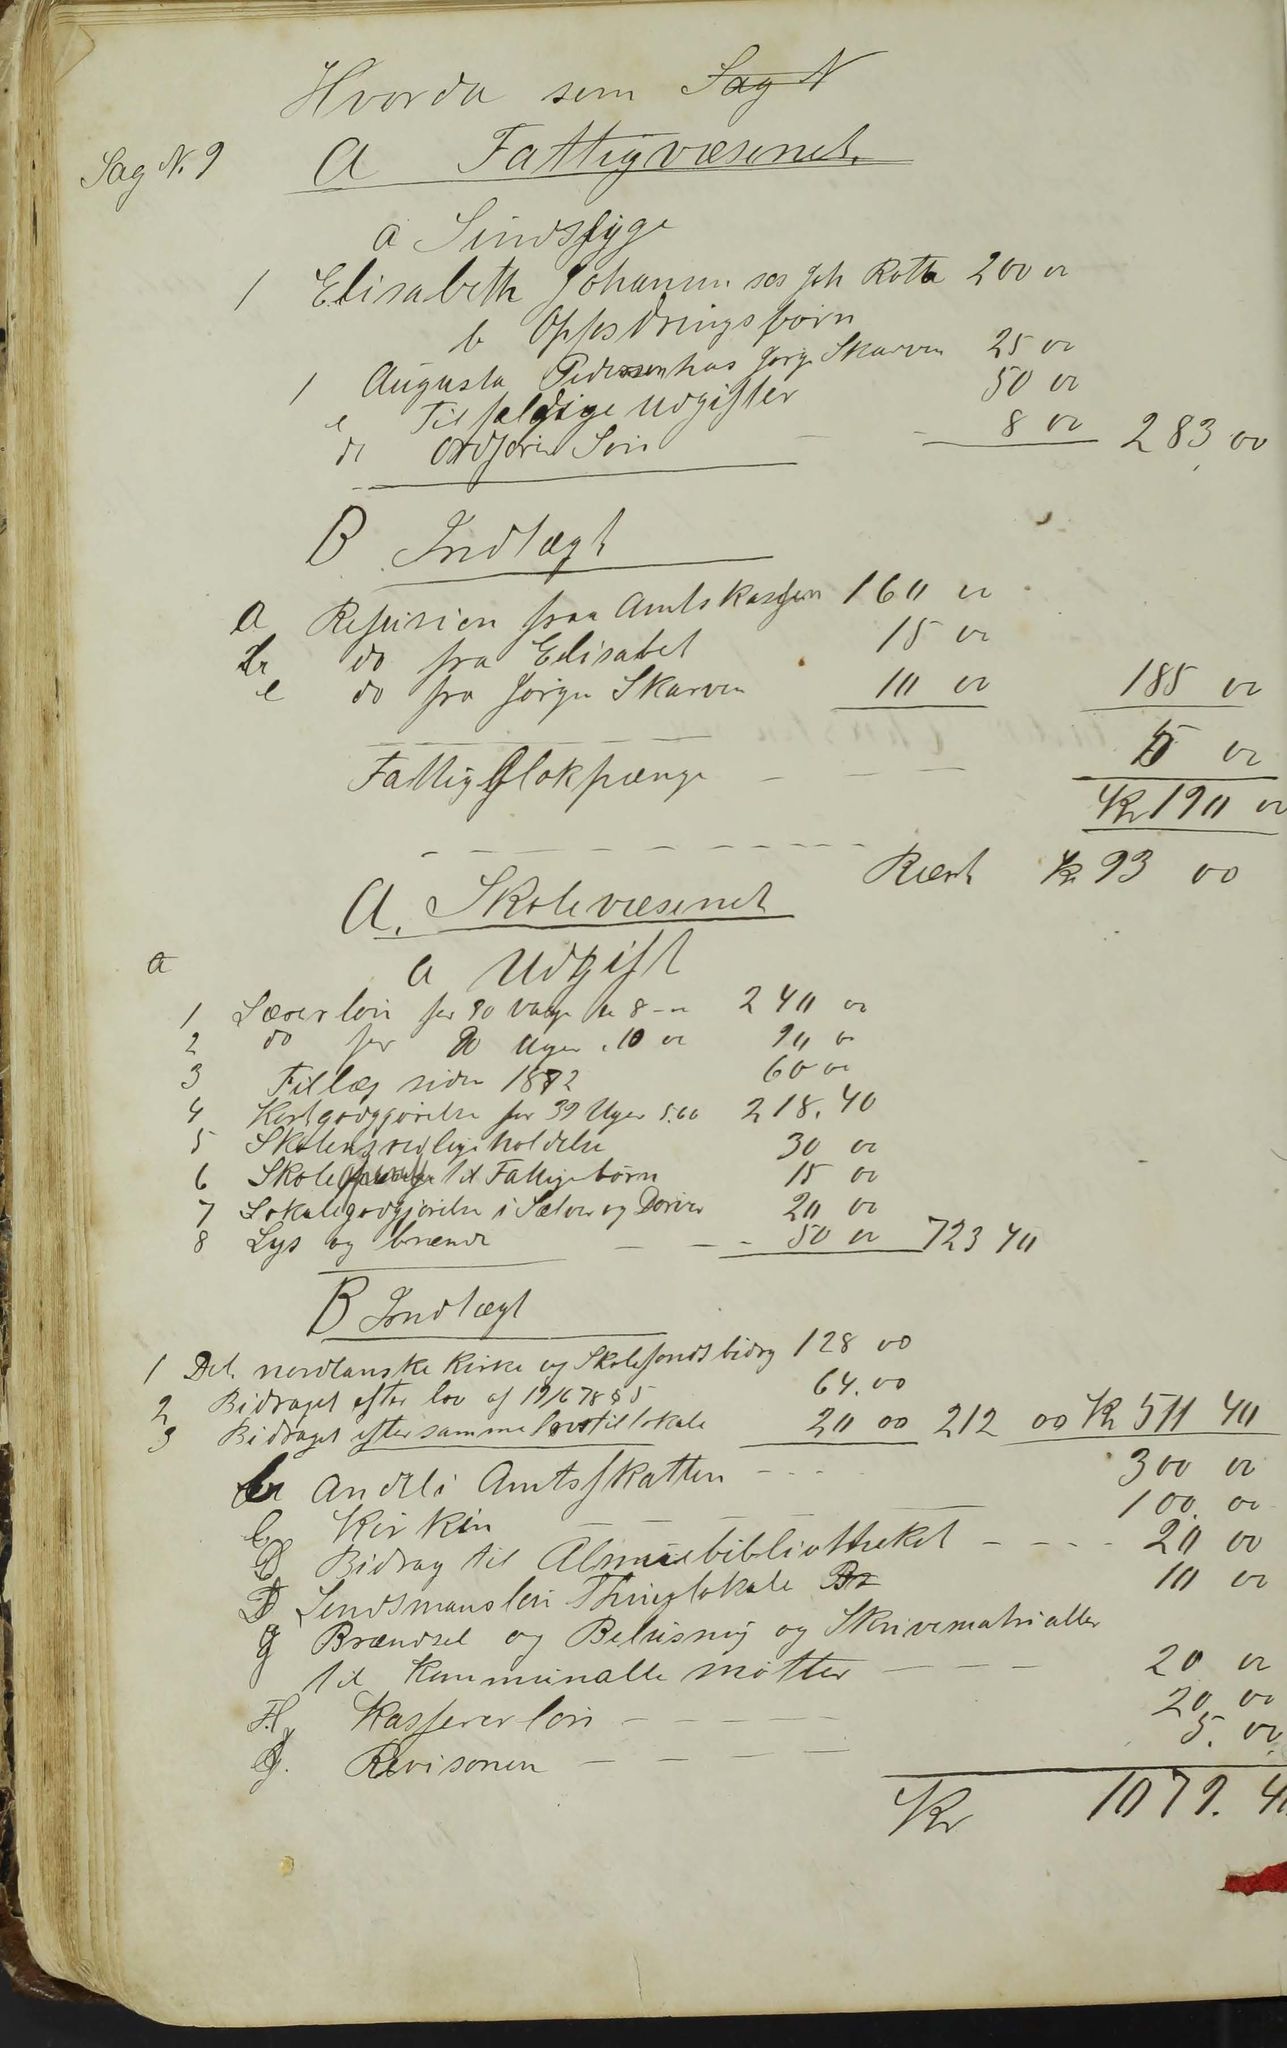 Hvorda som Sag N
Sag N. 9 A Fattigvæsenet.
a Sindssyge
1 Elisabeth Johansen hos Joh Rotta 200 00
b Oppfostringsbørn
1 Augusta Pedersen hos Jørg. Skarven 25 00
c Tilfældige Udgifter 50 00
d Ordførerløn 8 00 283,00
B Indtægt
a Refusion fraa Amtskassen 160 00
b do fra Elisabet 15 00
c do fra Jørgen Skarven 10 00 185 00
Fattigblokpænge 5 00
Kr 190 00
Ræst Kr 93 00
A. Skolevæsenet
a
a Udgift
1 Lærerløn for 30 Uger a 8 00 240 00
2 do for 9 Uger a 10 00 90 00
3 Tillæg siden 1872 60 00
4 Kostgodtgjørelse for 39 Uger 5.60 218.40
5 Skolens vedligeholdelse 30 00
6 Skole til Fattigebørn 15 00
7 Lokalegodtgjørelse i Sælver og Dorver 20 00
8 Lys og brænde 50 00 723 40
B Indtægt
1 Det nordlanske Kirke og Skolefondsbidrag 128 00
2 Bidraget efter lov af 19/6 78 § 5 64.00
3 Bidraget efter samme lov til lokale 20 00 212 00 Kr 511 40
b Andel i Amtsskatten 300 00
c Kirken 100.00
D Bidrag til Almuebibliotheket 20 00
Lensmansløn Thinglokale 10 00
g Brændsel og Belusning og Skrivematrialler
til kommunalle møtter 20 00
H. Kassererløn 20 00
Revisonen 5.00
Kr 1079.40